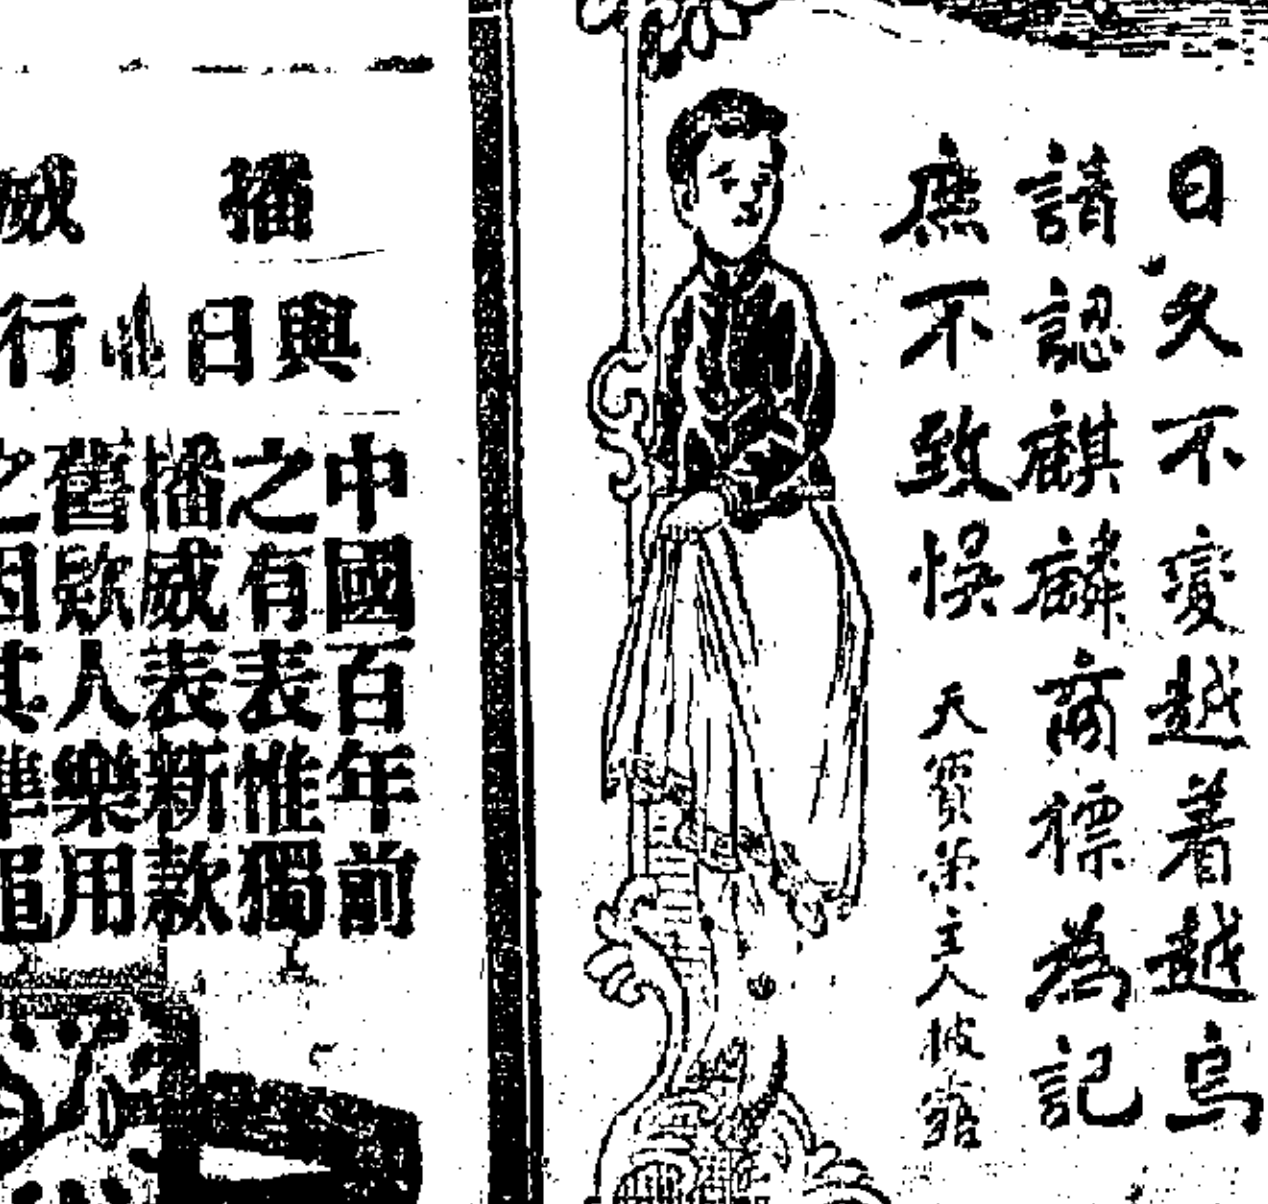 日久不變越着越烏
請認麒麟商標為記
庶不致悞 天寶榮主人披露
播威
與日並行
中國百年前
之有表惟獨
播威表新款
舊款人樂用
之因其準